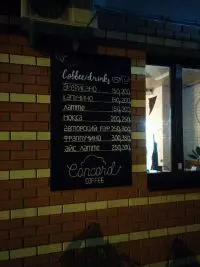 Coffee/drinks
эспрессо 150,200
капучино 150,200
латте 150,200
мокса 200,250
авторский раф 250,300
фраппучино 300,350
айс латте 250,300
Concord
COFFEE